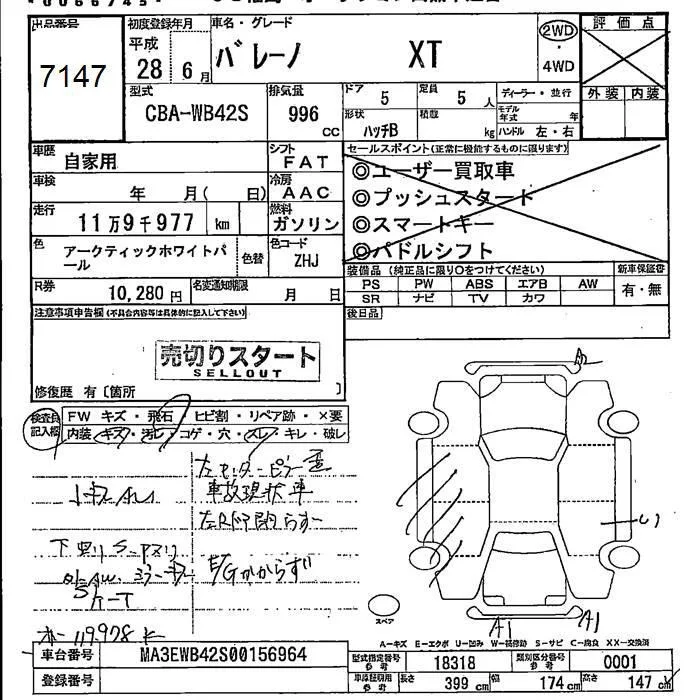 出品番号
7147
初度登録年月
平成
28 6月
車名・グレード
バレーノ XT
2WD
・
4WD
評価点
外装 内装
型式
CBA-WB42S
排気量
996
CC
ドア
5
定員
5 人
ディーラー・並行
モデル年式 年
形状
ハッチB
積載
kg
ハンドル 左・右
車歴
自家用
シフト
FAT
セールスポイント(正常に機能するものに限ります)
◎ユーザー買取車
◎プッシュスタート
◎スマートキー
◎パドルシフト
車検
年 月( 日)
冷房
AAC
走行
11万9千977 km
燃料
ガソリン
色
アークティックホワイトパール
色替
色コード
ZHJ
装備品(純正品に限り○をつけてください)
新車保証書
PS PW ABS エアB AW
有・無
SR ナビ TV カワ
R券
10,280円
名変通知期限
月 日
後日品
注意事項申告欄(不具合内容等は具体的に記入して下さい)
売切りスタート
SELLOUT
修復歴 有〔箇所 〕
検査員記入欄
FW キズ・飛石・ヒビ割・リペア跡・×要
内装・キズ・汚レ・コゲ・穴・スレ・キレ・破レ
事故現状車
E/Gかからず
119978
A2
A1
A1
スペア
A-キズ E-エクボ U-凹み W-補修跡 S-サビ C-腐食 XX-交換済
車台番号
MA3EWB42S00156964
型式指定番号
参考
18318
類別区分番号
参考
0001
登録番号
車庫証明用
参考
長さ
399 cm
幅
174 cm
高さ
147 cm